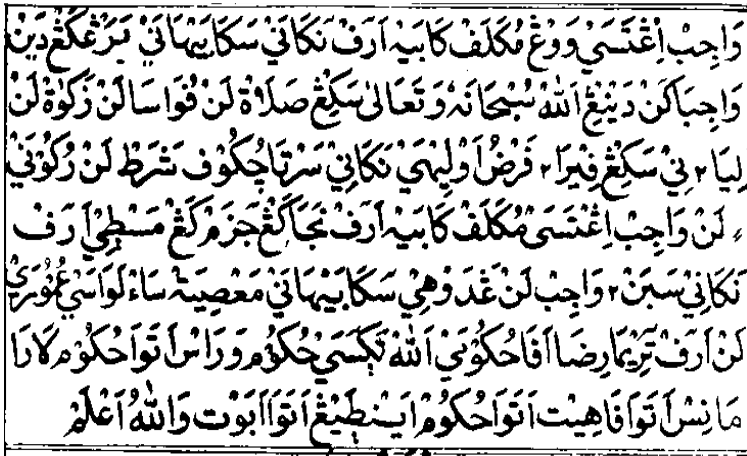 وَاجِبْ اِڠْتَسَيْ وَوڠْ مُكَلَفْ كَابَيْه اَرَفْ نَكَانَيْ سَكَابَيْهَانَيْ بَرَڠْ كَڠْ دَيْن
وَاجِبَاكَنْ دَيْنِيڠْ اَللّٰهْ سُبْحَانَهْ وَتَعَالىٰ سَكِڠْ صَلَاةْ لَنْ فُوَاسَا لَنْ زَكٰوةْ لَنْ
لِيَا٢ نَيْ سَكِڠْ فِيْرَا٢ فَرْضُ اَوْلِيْهَيْ نَكَانِيْ سَرْتَا چُكُوْفْ شَرَطْ لَنْ رُكُوْنَيْ
لَنْ وَاجِبْ اِڠْتَسَيْ مُكَلَفْ كَابَيْه اَرَفْ نَجَاكَڠْ جَزَمْ كَڠْ مَسْطِيْ اَرَفْ
نَكَانِيْ سَبَنْ٢ وَاجِبْ لَنْ ڠَدَوْهِيْ سَكَابَيْهَانَيْ مَعْصِيَةْ سَاءْلَوَاسَيْ عُمُوْرَيْ
لَنْ اَرَفْ تَرِيْمَا رِضَا اَفَا حُكُوْمَيْ اَللّٰهْ تَكٓسَيْ حُكُوْم وَرَاسْ اَتَوَا حُكُوْم لَارَا
مَانِسْ اَتَوَا فَاهِيْت اَتَوَا حُكُوْم اَيْنْطَيْڠْ اَتَوَا اَبَوْت وَاللّٰهُ اَعْلَمْ